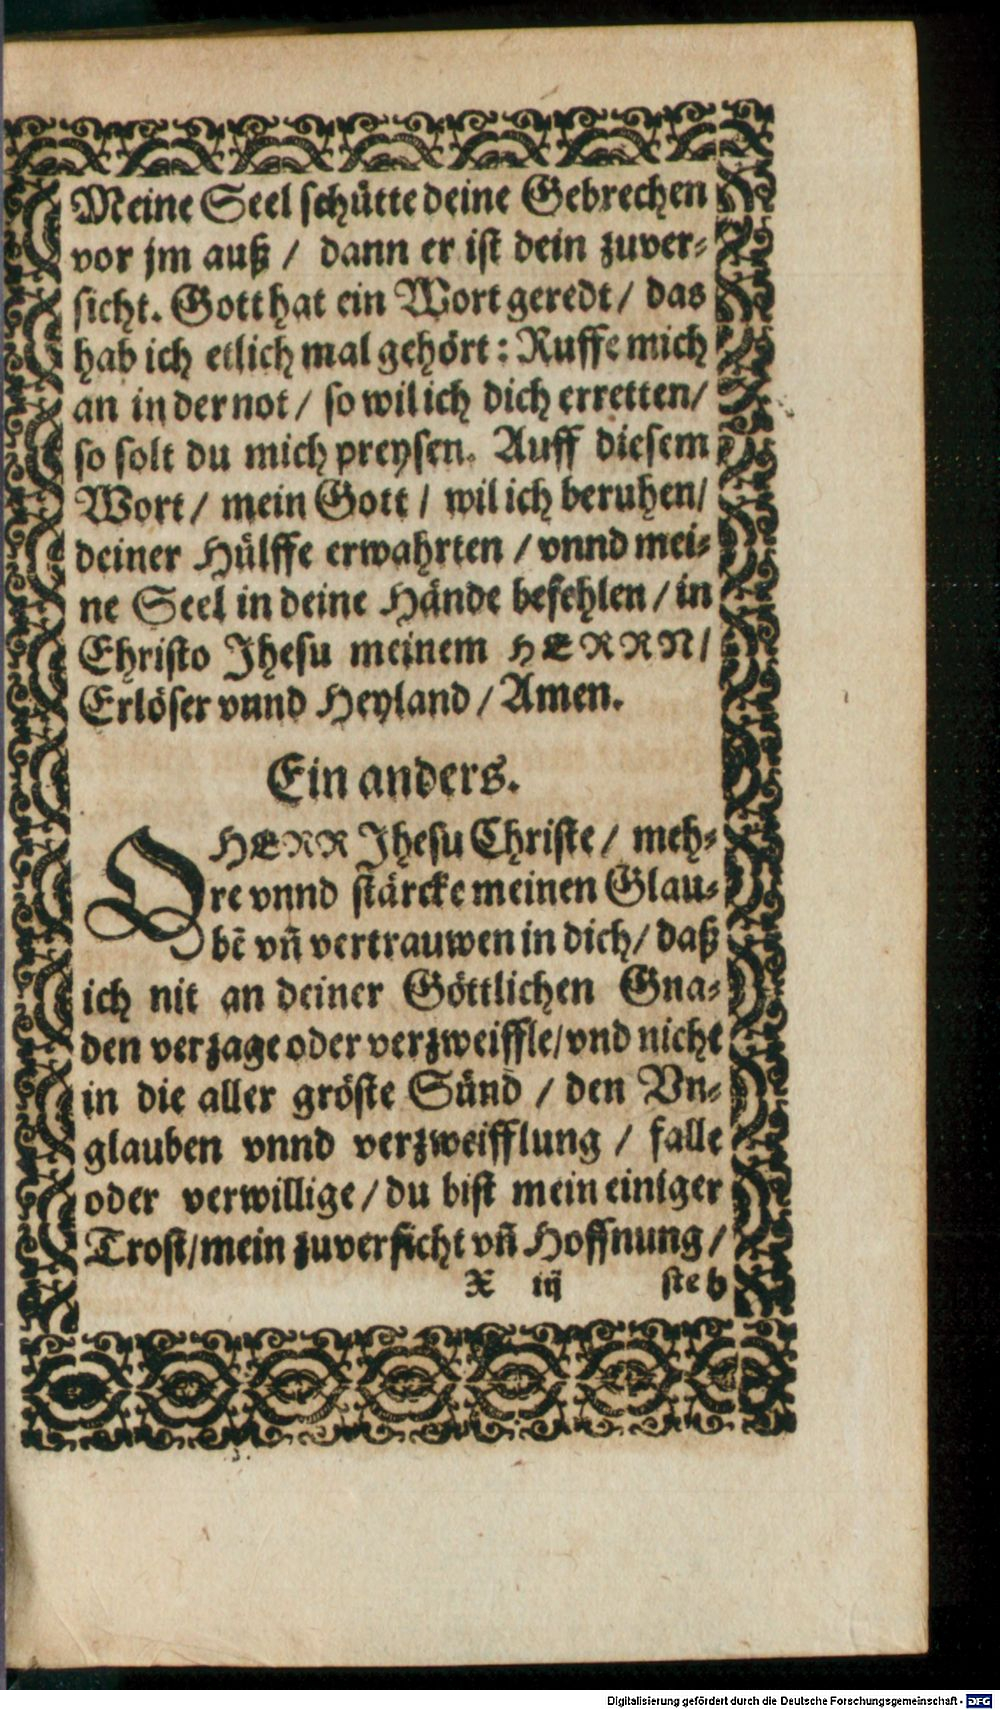 Meine Seel schütte deine Gebrechen
vor jm auß / dann er ist dein zuver-
sicht. Gott hat ein Wort geredt / das
hab ich etlich mal gehört : Ruffe mich
an in der not / so wil ich dich erretten /
so solt du mich preysen. Auff diesem
Wort / mein Gott / wil ich beruhen /
deiner Hülffe erwahrten / vnnd mei-
ne Seel in deine Hände befehlen / in
Christo Jhesu meinem HERRN /
Erlöser vnnd Heyland / Amen.
Ein anders.
O HERR Jhesu Christe / meh-
re vnnd stärcke meinen Glau-
bē vñ vertrauwen in dich / daß
ich nit an deiner Göttlichen Gna-
den verzage oder verzweiffle / vnd nicht
in die aller gröste Sünd / den Vn-
glauben vnnd verzweifflung / falle
oder verwillige / du bist mein einiger
Trost / mein zuversicht vñ Hoffnung /
X iij steh
Digitalisierung gefördert durch die Deutsche Forschungsgemeinschaft - DFG